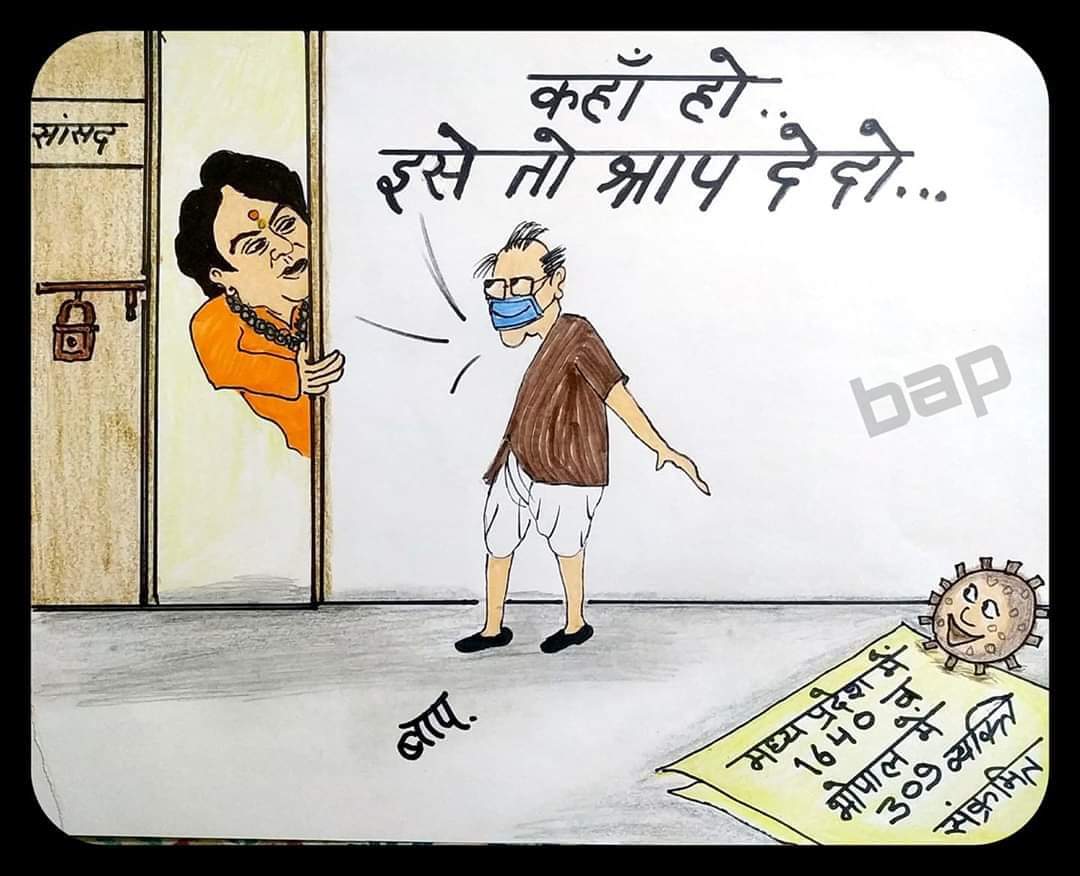 सांसद
कहाँ हो..
इसे तो श्राप दे दो...
bap
बाप.
मध्य प्रदेश में
1640
भोपाल में
309 व्यक्ति
संक्रमित